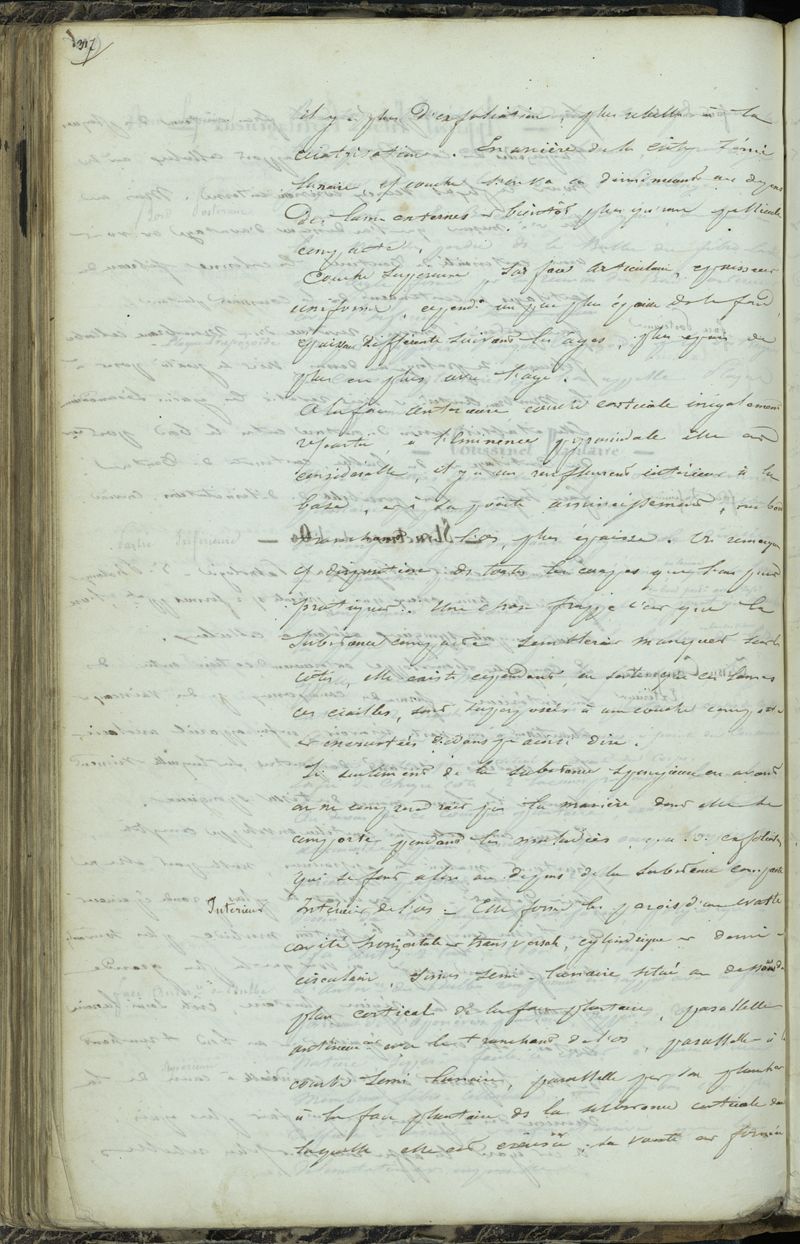 il y a plus d'exfoliation, plus rebelle à la
cicatrisation. En arrière de la crête semi
lunaire, couche en diminuant au dépens
Des lames externes et bientôt plus qu'une pellicule
compacte.
Couche supérieure sur face articulaire, épaisseur
uniforme, cepend. un peu plus épaisse dans le fond,
épaisseur différente suivant les ages, plus épais de
plus en plus avec l'age.
A la face antérieure couche corticale inégalement
repartie, à l'Eminence pyramidale elle est
considérable, il y a un renflement intérieur à la
base, et à sa pointe amincissement, au bord
tranchant de l'os, plus épaisse. On remarque
disposition de toutes les coupes que l'on peut
pratiquer. Une chose frappe c'est que la
substance compacte semblerait manquer sur les
côtés, elle existe cependant, en sorte que ces lames
ces écailles, sont superposées à une couche compacte
et incrustées dedans pr ainsi dire.
Si seulement de la substance spongieuse en avant
on ne comprendrait pas la manière dont elle se
comporte pendant les maladies exfoliation
qui se font alors au dépens de la substance compacte
Intérieur
Intérieur de l'os = Elle forme les parois d'une vaste
cavité horizontale et transversale, cylindrique et demi-
circulaire, Sinus semi-lunaire situé au dessous du
plan cortical de la face plantaire, parallelle
antérieurt avec le tranchant de l'os, parallelle à la
courbe semi lunaire, parallelle par son plancher
à la face plantaire de la substance corticale dans
laquelle elle est creusée, sa voute est formée